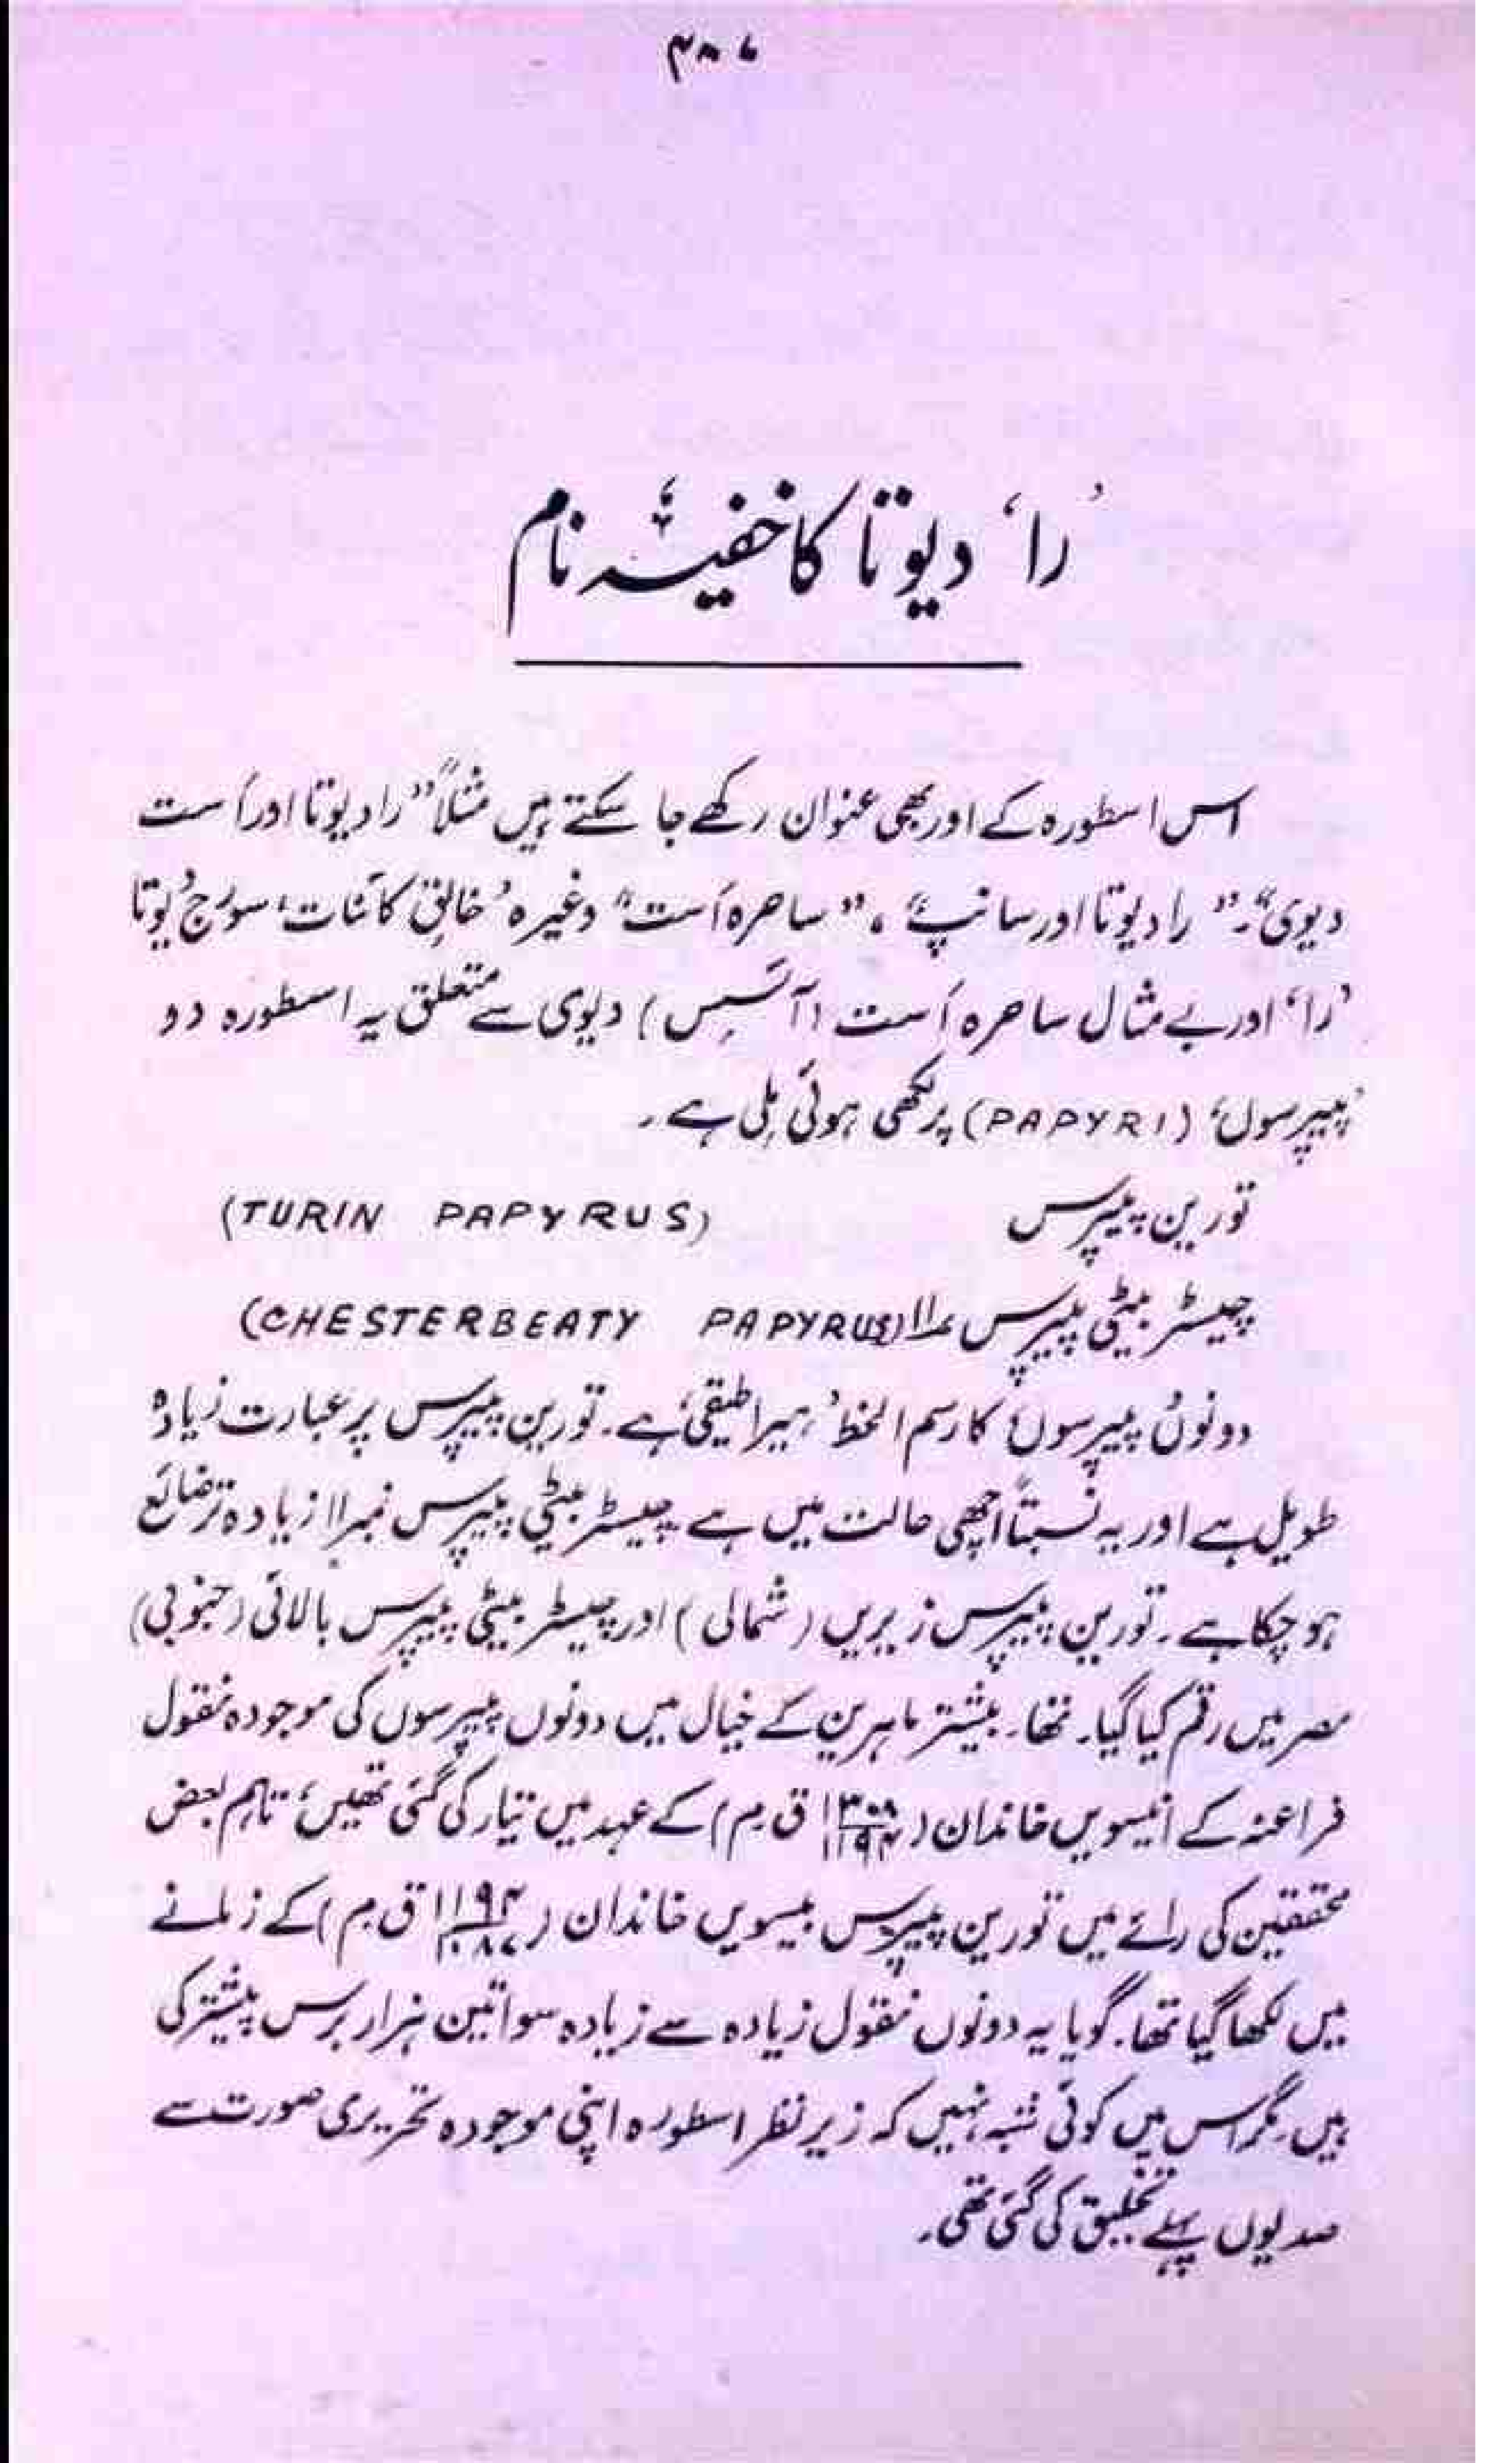 ۴۸۷
’را‘ دیوتا کا خفیہ نام
اس اسطورہ کے اور بھی عنوان رکھے جا سکتے ہیں مثلاً ”را دیوتا اور اَست
دیوی“۔ ”را دیوتا اور سانپ“، ”ساحرہ اَست“ وغیرہ خالقِ کائنات، سورج دیوتا
’را‘ اور بے مثال ساحرہ اَست (آئسِس) دیوی سے متعلق یہ اسطورہ دو
’پیپرسوں‘ (PAPYRI) پر لکھی ہوئی ملی ہے۔
تورین پیپرس (TURIN PAPYRUS)
چیسٹر بیٹی پیپرس نمبر۱۱ (CHESTERBEATY PAPYRUS)
دونوں ’پیپرسوں‘ کا رسم الخط ’ہیراطیقی‘ ہے۔ تورین پیپرس پر عبارت زیادہ
طویل ہے اور یہ نسبتاً اچھی حالت میں ہے۔ چیسٹر بیٹی پیپرس نمبر۱۱ زیادہ تر ضائع
ہو چکا ہے۔ تورین پیپرس زیریں (شمالی) اور چیسٹر بیٹی پیپرس بالائی (جنوبی)
مصر میں رقم کیا گیا۔ تھا۔ بیشتر ماہرین کے خیال میں دونوں پیپرسوں کی موجودہ نقول
فراعنہ کے انیسویں خاندان (۱۳۰۸/۱۱۹۴ ق۔م) کے عہد میں تیار کی گئی تھیں، تاہم بعض
محققین کی رائے میں تورین پیپرس بیسویں خاندان (۱۱۹۴/۱۰۸۷ ق۔م) کے زمانے
میں لکھا گیا تھا۔ گویا یہ دونوں نقول زیادہ سے زیادہ سوا تین ہزار برس پیشتر کی
ہیں۔ مگر اس میں کوئی شبہ نہیں کہ زیر نظر اسطورہ اپنی موجودہ تحریری صورت سے
صدیوں پہلے تخلیق کی گئی تھی۔